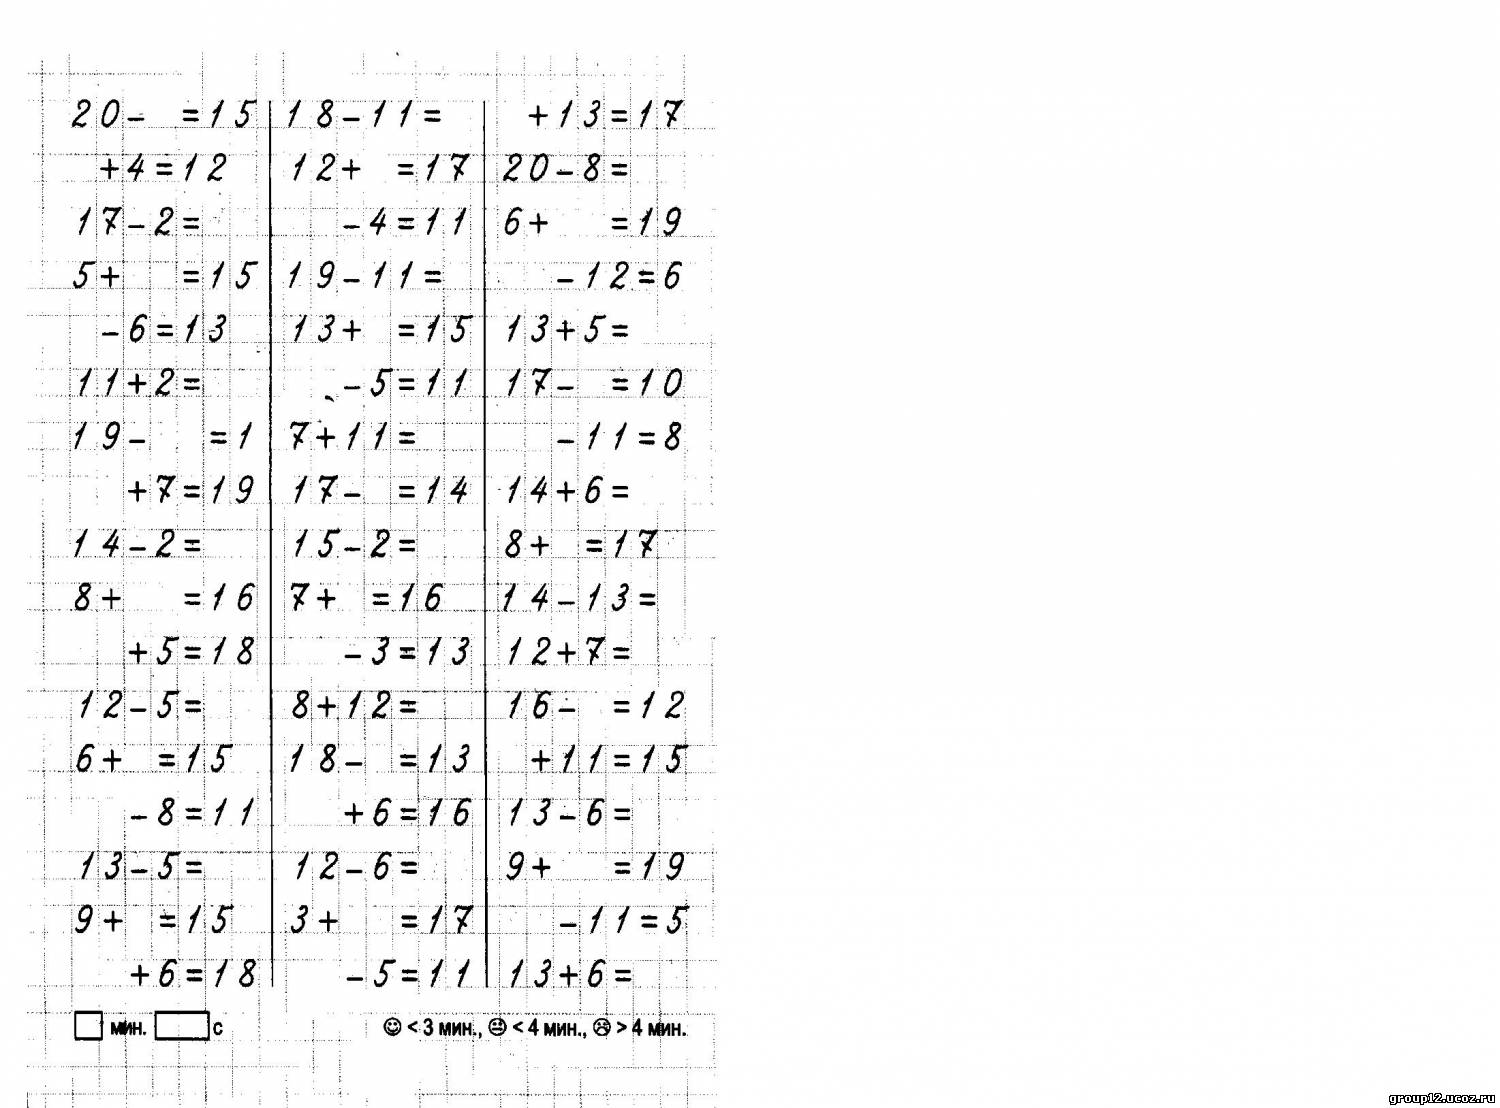 20-  =15
+4=12
17-2=
5+  =15
-6=13
11+2=
19-  =1
+7=19
14-2=
8+  =16
+5=18
12-5=
6+  =15
-8=11
13-5=
9+  =15
+6=18
18-11=
12+  =17
-4=11
19-11=
13+  =15
-5=11
7+11=
17-  =14
15-2=
7+  =16
-3=13
8+12=
18-  =13
+6=16
12-6=
3+  =17
-5=11
+13=17
20-8=
6+  =19
-12=6
13+5=
17-  =10
-11=8
14+6=
8+  =17
14-13=
12+7=
16-  =12
+11=15
13-6=
9+  =19
-11=5
13+6=
мин.  с
< 3 мин., < 4 мин., > 4 мин.
group12.ucoz.ru